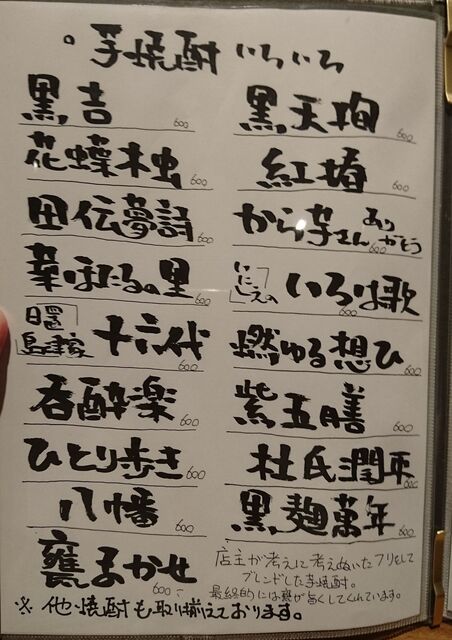 。芋焼酎いろいろ
黒吉 600
黒天狗 600
花蝶木虫 600
紅椿 600
田伝夢詩 600
から芋さんありがとう 600
華ほたるの里 600
「いにしえの」いろは歌 600
十六代 600
燃ゆる想ひ 600
呑酔楽 600
紫五膳 600
ひとり歩き 600
杜氏潤平 600
八幡 600
黒麹萬年 600
甕まかせ 600
店主が考えに考えぬいたフリをして
ブレンドした芋焼酎。
最終的には甕が旨くしてくれています。
※他焼酎も取り揃えております。